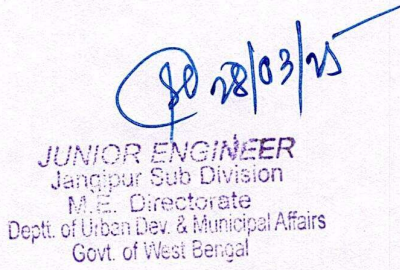 28/03/25
JUNIOR ENGINEER
Jangipur Sub Division
M.E. Directorate
Deptt. of Urban Dev. & Municipal Affairs
Govt. of West Bengal